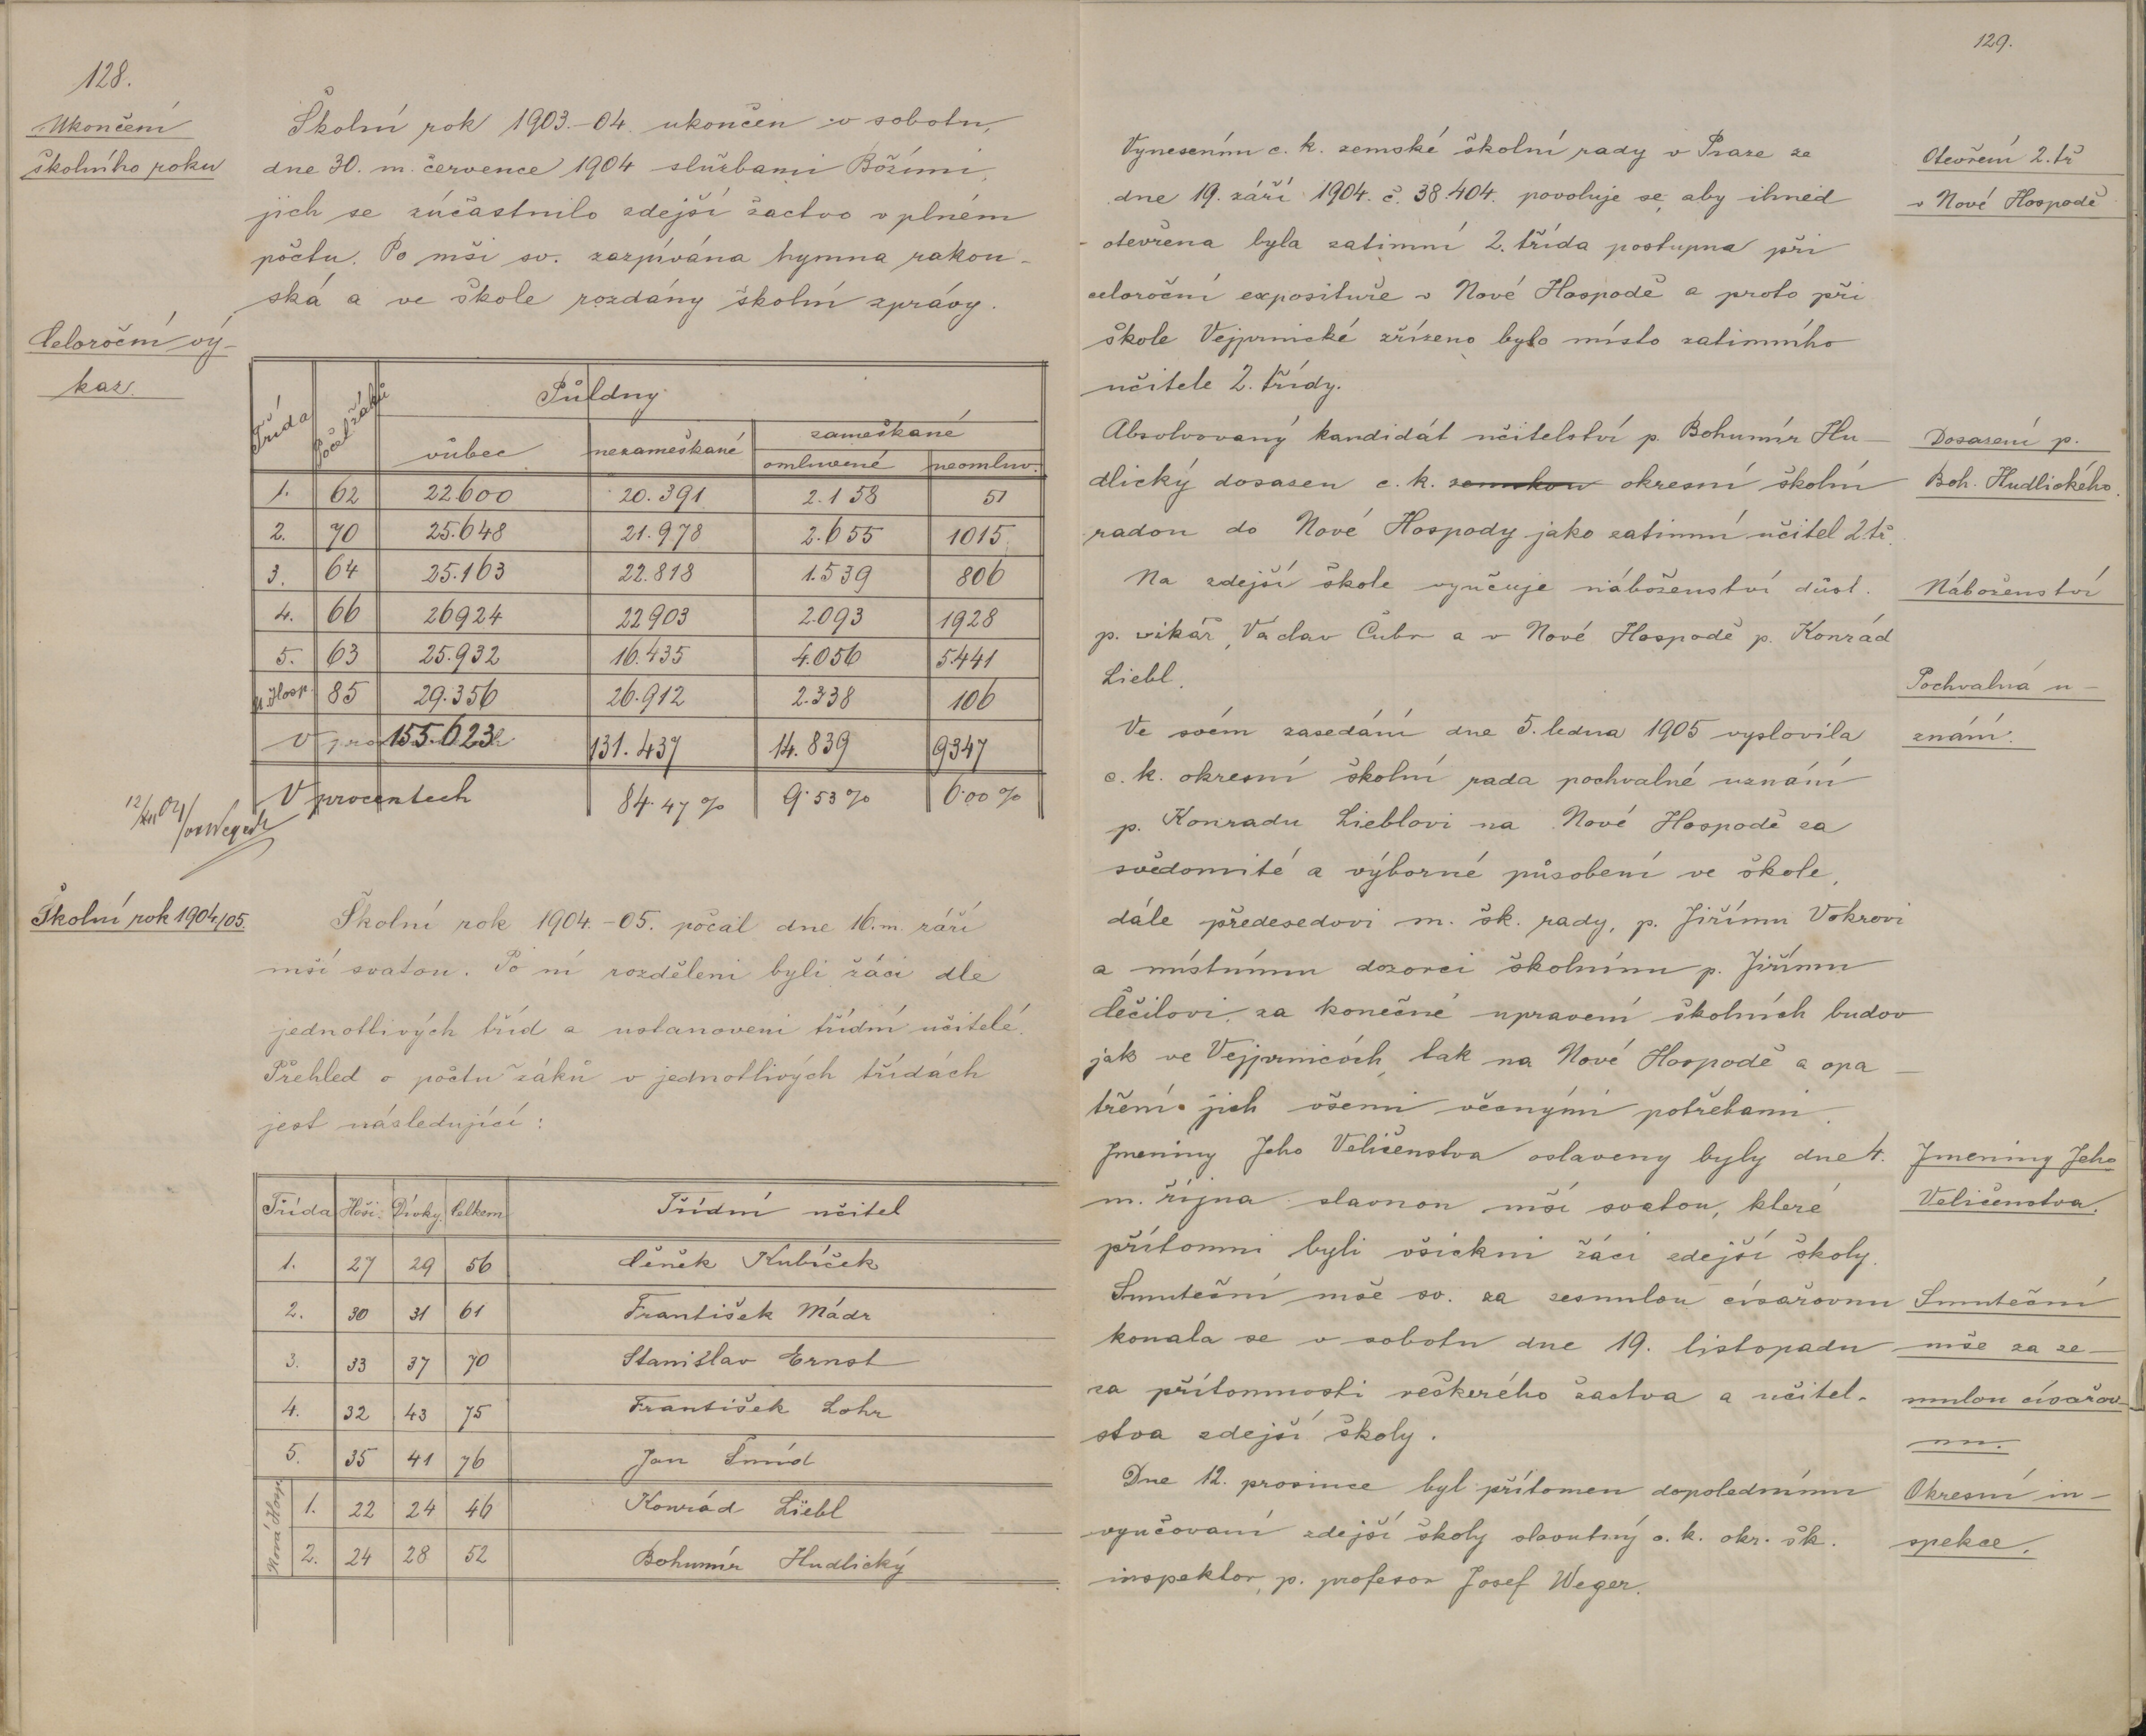 128.
Ukončení
školního roku
Školní rok 1903.-04. ukončen v sobotu,
dne 30. m. července 1904 službami Božími,
jich se zúčastnilo zdejší žactvo v plném
počtu. Po mši sv. zazpívána hymna rakou-
ská a ve škole rozdány školní zprávy.
Celoroční vý-
kaz.
Třída Počet žáků Půldny
vůbec nezameškané zameškané
omluvené neomluv.
1. 62 22600 20.391 2.158 51
2. 70 25.648 21.978 2.655 1015
3. 64 25.163 22.818 1.539 806
4. 66 26924 22903 2.093 1928
5. 63 25.932 16.435 4.056 5441
N. Hosp. 85 29.356 26.912 2.338 106
155.623 131.437 14.839 9347
V procentech 84.47 % 9.53 % 6.00 %
12/XII 04
Školní rok 1904/05.
Školní rok 1904.-05. počal dne 16. m. září
mší svatou. Po ní rozděleni byli žáci dle
jednotlivých tříd a ustanoveni třídní učitelé.
Přehled o počtu žáků v jednotlivých třídách
jest následující:
Třída Hoši Dívky Celkem Třídní učitel
1. 27 29 56 Čeněk Kubíček
2. 30 31 61 František Mádr
3. 33 37 70 Stanislav Ernst
4. 32 43 75 František Lohr
5. 35 41 76 Jan Šmíd
Nová Hosp.
1. 22 24 46 Konrád Liebl
2. 24 28 52 Bohumír Hudlický
129.
Vynesením c. k. zemské školní rady v Praze ze
dne 19. září 1904. č. 38.404. povoluje se, aby ihned
otevřena byla zatimní 2. třída postupna při
celoroční exposituře v Nové Hospodě a proto při
škole Vejprnické zřízeno bylo místo zatimního
učitele 2. třídy.
Otevření 2. tř
v Nové Hospodě
Absolvovaný kandidát učitelství p. Bohumír Hu-
dlický dosazen c. k. zemskou okresní školní
radou do Nové Hospody jako zatimní učitel 2. tř.
Dosazení p.
Boh. Hudlického.
Na zdejší škole vyučuje náboženství důst.
p. vikář, Václav Cubr a v Nové Hospodě p. Konrád
Liebl.
Náboženství
Ve svém zasedání dne 5. ledna 1905 vyslovila
c. k. okresní školní rada pochvalné uznání
p. Konradu Lieblovi na Nové Hospodě za
svědomité a výborné působení ve škole,
dále předsedovi m. šk. rady, p. Jiřímu Vokrovi
a místnímu dozorci školnímu p. Jiřímu
Čečilovi, za konečné upravení školních budov
jak ve Vejprnicích, tak na Nové Hospodě a opa-
tření jich všemi věcnými potřebami.
Pochvalná u-
znání.
Jmeniny Jeho Veličenstva oslaveny byly dne 4.
m. října slavnou mší svatou, které
přítomni byli všickni žáci zdejší školy.
Jmeniny Jeho
Veličenstva.
Smuteční mše sv. za zesnulou císařovnu
konala se v sobotu dne 19. listopadu
za přítomnosti veškerého žactva a učitel-
stva zdejší školy.
Smuteční
mše za ze-
snulou císařov-
nu.
Dne 12. prosince byl přítomen dopolednímu
vyučovaní zdejší školy slovutný c. k. okr. šk.
inspektor, p. profesor Josef Weger.
Okresní in-
spekce.